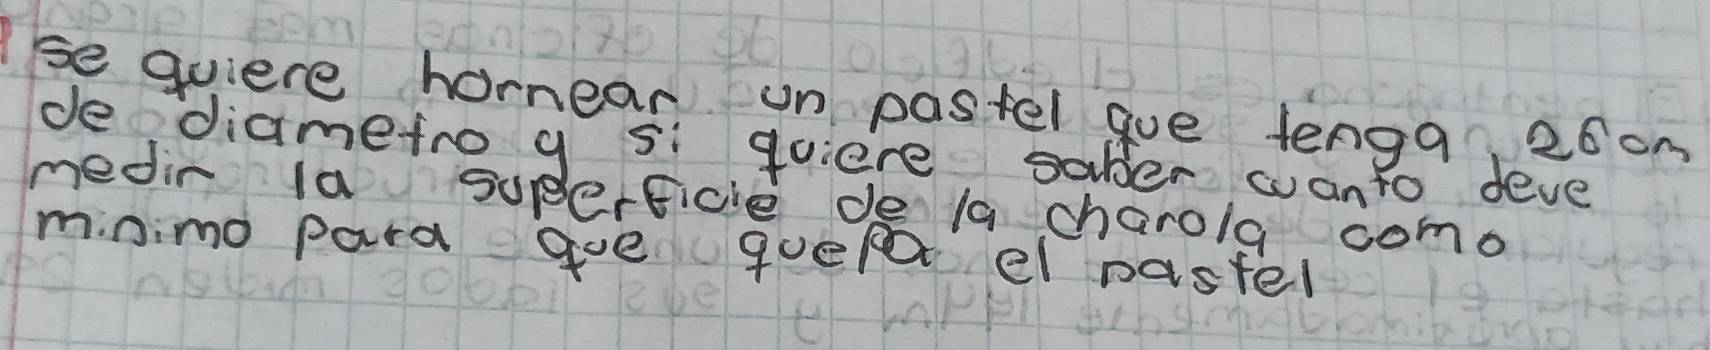 se quiere hornear un pastel que tenga 26cm
de diametro y si quiere saber cuanto deve
medir la superficie de la charola como
minimo para que quepa el pastel